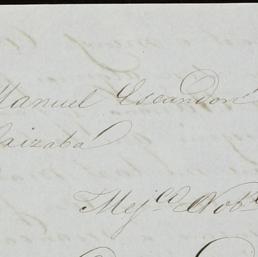 Manuel Escandon
Orizaba
Mejco Nobe